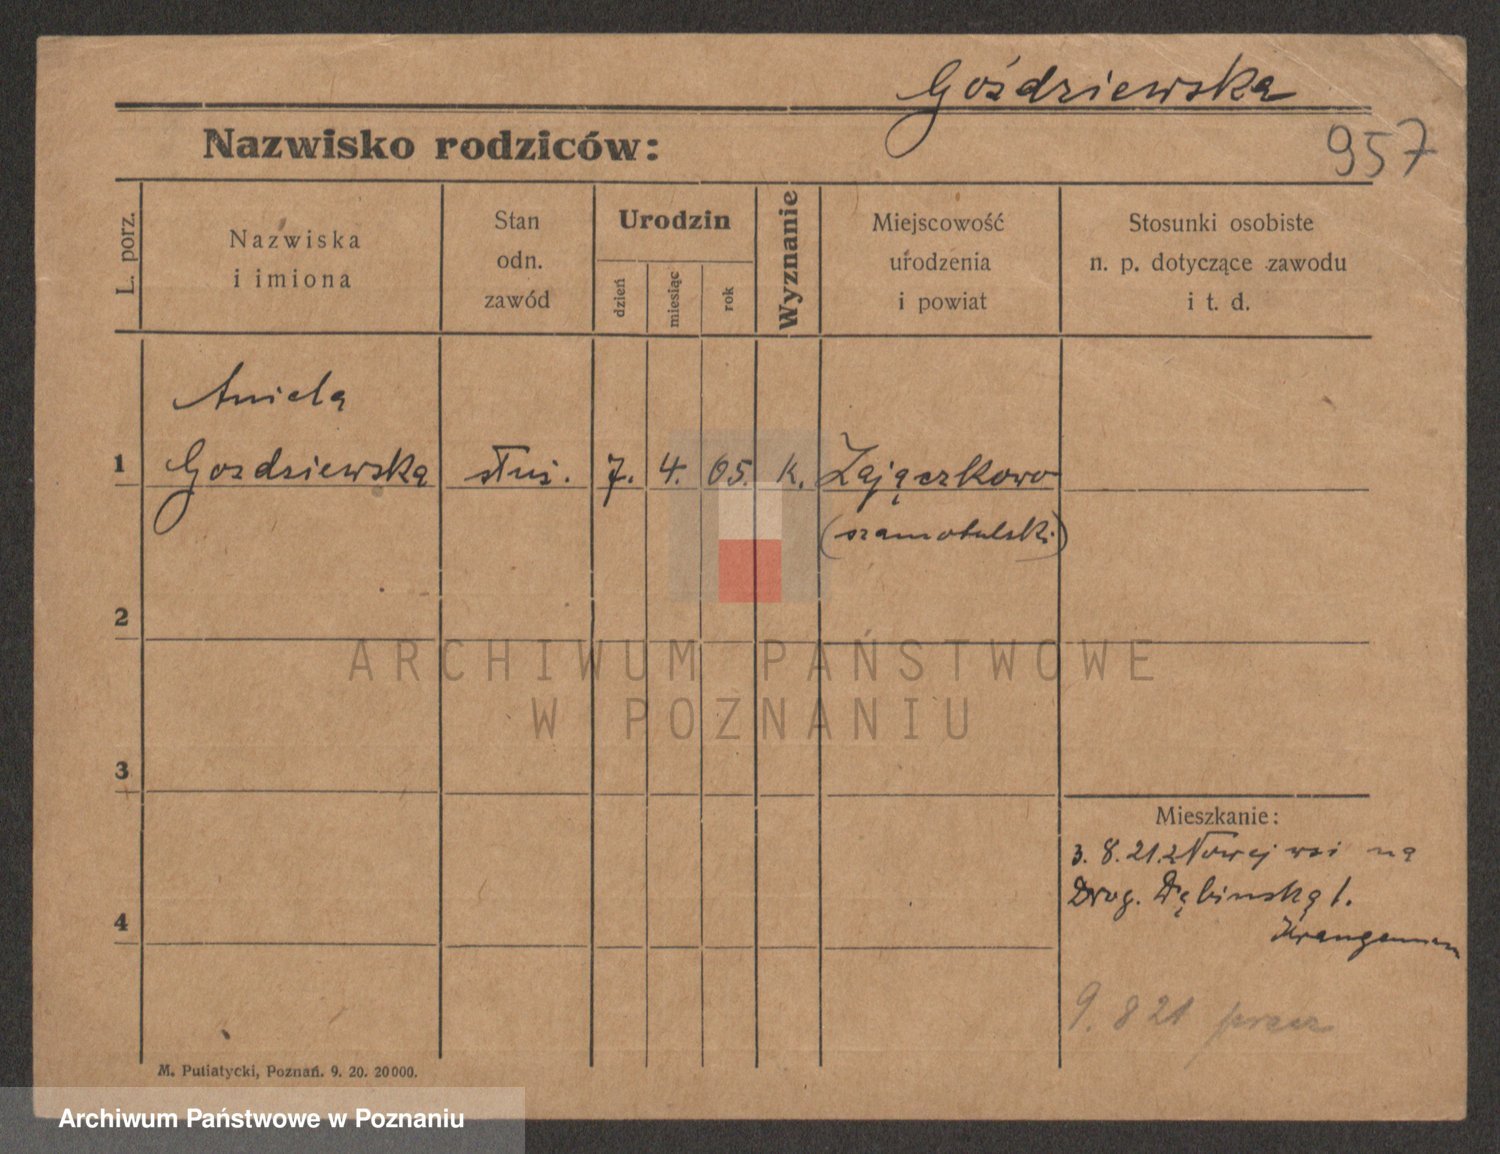 Goździewska
957
Nazwisko rodziców:
L. porz.
Nazwiska
i imiona
Stan
odn.
zawód
Urodzin
dzień
miesiąc
rok
Wyznanie
Miejscowość
urodzenia
i powiat
Stosunki osobiste
n. p. dotyczące zawodu
i t. d.
Aniela
1 Gozdziewska służ. 7. 4. 05. k. Zajączkowo
(szamotulski)
2
ARCHIWUM PAŃSTWOWE
W POZNANIU
3
Mieszkanie:
3. 8. 21. z Nowej wsi na
Drog. Dębinską 1.
4
9. 8 21 przez
M. Putiatycki, Poznań. 9. 20. 20000.
Archiwum Państwowe w Poznaniu